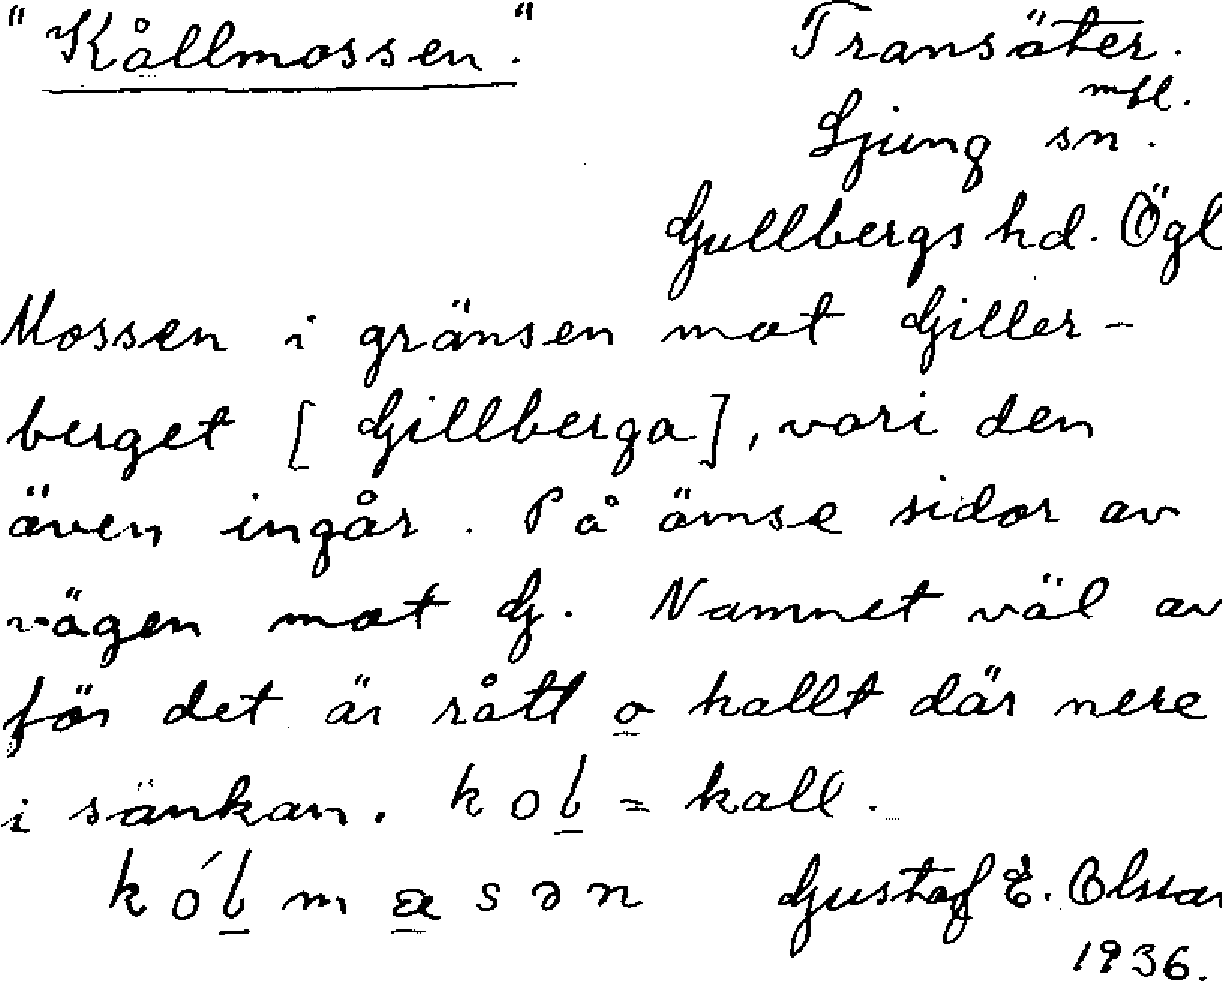 "Kållmossen." Transäter.
mfl.
Ljung sn.
Gullbergs hd. Ögl
Mossen i gränsen mot Giller-
berget [Gillberga], vari den
även ingår. På ömse sidor av
vägen mot G. Namnet väl av
för det är rått o kallt där nere
i sänkan. kol = kall.
kólmasən Gustaf E. Olsson
1936.